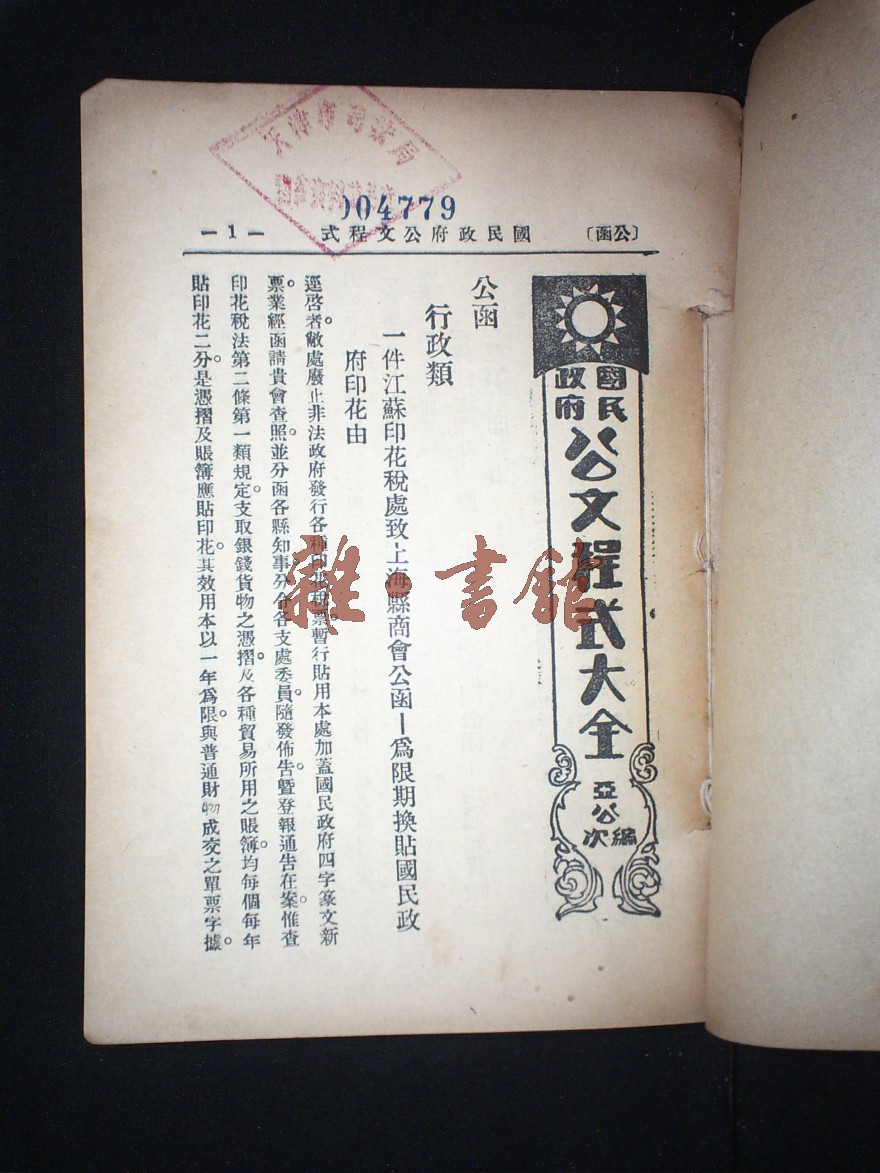 004779
〔公函〕 國民政府公文程式 —1—
國民政府
公文程式大全
亞公次編
公函
行政類
一件江蘇印花稅處致上海縣商會公函—爲限期換貼國民政
府印花由
逕啓者。敝處廢止非法政府發行各種印花稅票。暫行貼用本處加蓋國民政府四字篆文新
票。業經函請貴會查照。並分函各縣知事。分令各支處委員。隨發佈告。曁登報通告在案。惟查
印花稅法第二條第一類規定。支取銀錢貨物之憑摺。及各種貿易所用之賬簿。均每個每年
貼印花二分。是憑摺及賬簿應貼印花。其效用本以一年爲限。與普通財物成交之單票字據。
雜·書館